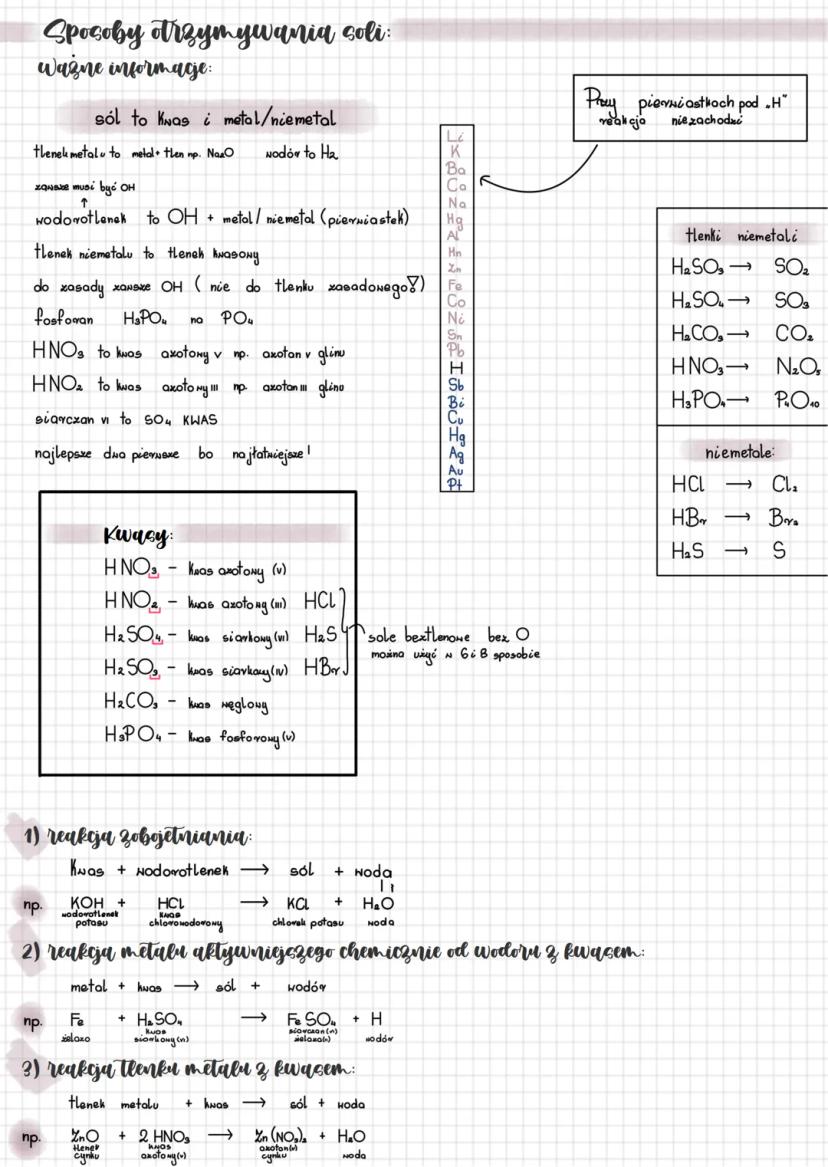 Sposoby otrzymywania soli:
ważne informacje:
Przy pierwiastkach pod „H"
reakcja niezachodzi
sól to kwas i metal/niemetal
tlenek metalu to metal + tlen np. Na₂O wodór to H₂
zawsze musi być OH
↑
wodorotlenek to OH + metal/niemetal (pierwiastek)
tlenek niemetalu to tlenek kwasowy
do zasady zawsze OH ( nie do tlenku zasadowego!)
fosforan H₃PO₄ na PO₄
HNO₃ to kwas azotowy v np. azotan v glinu
HNO₂ to kwas azotowy III np. azotan III glinu
siarczan VI to SO₄ KWAS
najlepsze dwa pierwsze bo najłatwiejsze!
Li
K
Ba
Ca
Na
Hg
Al
Hn
Zn
Fe
Co
Ni
Sn
Pb
H
Sb
Bi
Cu
Hg
Ag
Au
Pt
tlenki niemetali
H₂SO₃ → SO₂
H₂SO₄ → SO₃
H₂CO₃ → CO₂
HNO₃ → N₂O₅
H₃PO₄ → P₄O₁₀
niemetale:
HCl → Cl₂
HBr → Br₂
H₂S → S
Kwasy:
HNO₃ - kwas azotowy (v)
HNO₂ - kwas azotowy (III) HCl
H₂SO₄ - kwas siarkowy (VI) H₂S
H₂SO₃ - kwas siarkowy (IV) HBr
H₂CO₃ - kwas węglowy
H₃PO₄ - kwas fosforowy (v)
sole beztlenowe bez O
można użyć w 6 i 8 sposobie
1) reakcja zobojętniania:
kwas + wodorotlenek → sól + woda
np. KOH + HCl → KCl + H₂O
wodorotlenek potasu kwas chlorowodorowy chlorek potasu woda
2) reakcja metalu aktywniejszego chemicznie od wodoru z kwasem:
metal + kwas → sól + wodór
np. Fe + H₂SO₄ → FeSO₄ + H
żelazo kwas siarkowy (VI) siarczan (VI) żelaza (II) wodór
3) reakcja tlenku metalu z kwasem:
tlenek metalu + kwas → sól + woda
np. ZnO + 2 HNO₃ → Zn(NO₃)₂ + H₂O
tlenek cynku kwas azotowy (v) azotan (v) cynku woda